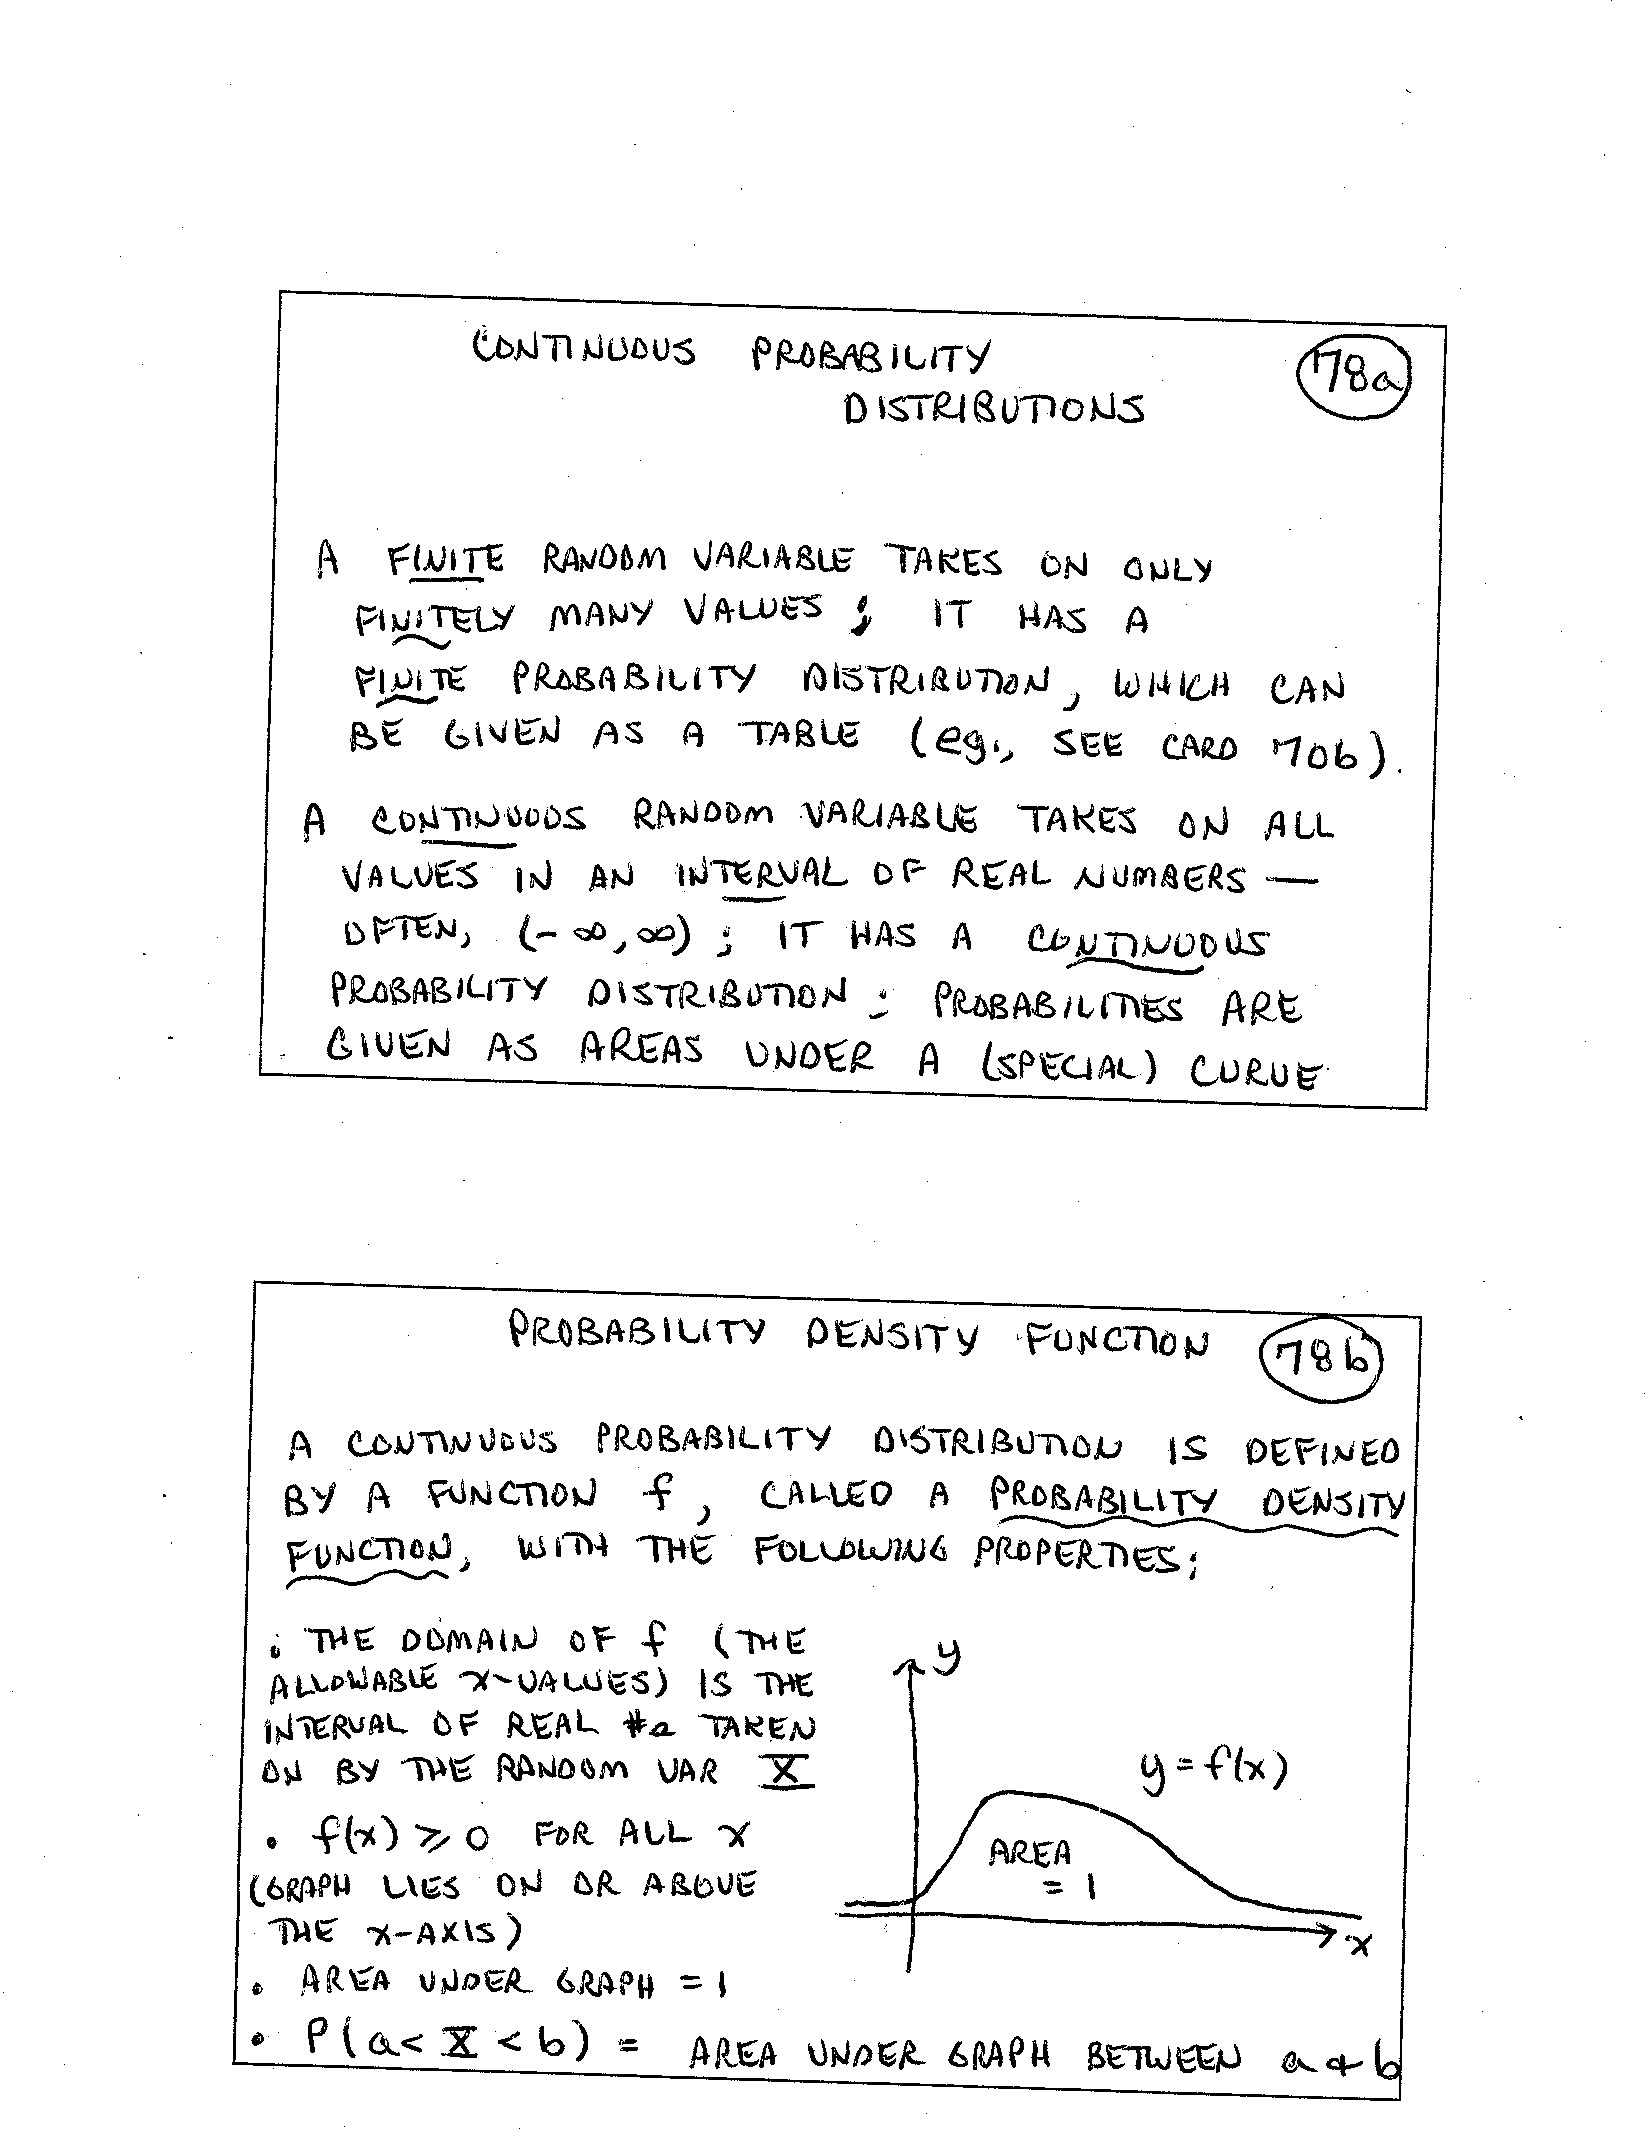 CONTINUOUS PROBABILITY
DISTRIBUTIONS
78a
A FINITE RANDOM VARIABLE TAKES ON ONLY
FINITELY MANY VALUES ; IT HAS A
FINITE PROBABILITY DISTRIBUTION, WHICH CAN
BE GIVEN AS A TABLE (eg., SEE CARD 70b).
A CONTINUOUS RANDOM VARIABLE TAKES ON ALL
VALUES IN AN INTERVAL OF REAL NUMBERS —
OFTEN, (-∞,∞) ; IT HAS A CONTINUOUS
PROBABILITY DISTRIBUTION : PROBABILITIES ARE
GIVEN AS AREAS UNDER A (SPECIAL) CURVE
PROBABILITY DENSITY FUNCTION 78b
A CONTINUOUS PROBABILITY DISTRIBUTION IS DEFINED
BY A FUNCTION f, CALLED A PROBABILITY DENSITY
FUNCTION, WITH THE FOLLOWING PROPERTIES:
• THE DOMAIN OF f (THE
ALLOWABLE x-VALUES) IS THE
INTERVAL OF REAL #s TAKEN
ON BY THE RANDOM VAR X
• f(x) ≥ 0 FOR ALL x
(GRAPH LIES ON OR ABOVE
THE x-AXIS)
• AREA UNDER GRAPH = 1
• P(a< X < b) = AREA UNDER GRAPH BETWEEN a + b
y
y = f(x)
AREA
= 1
x